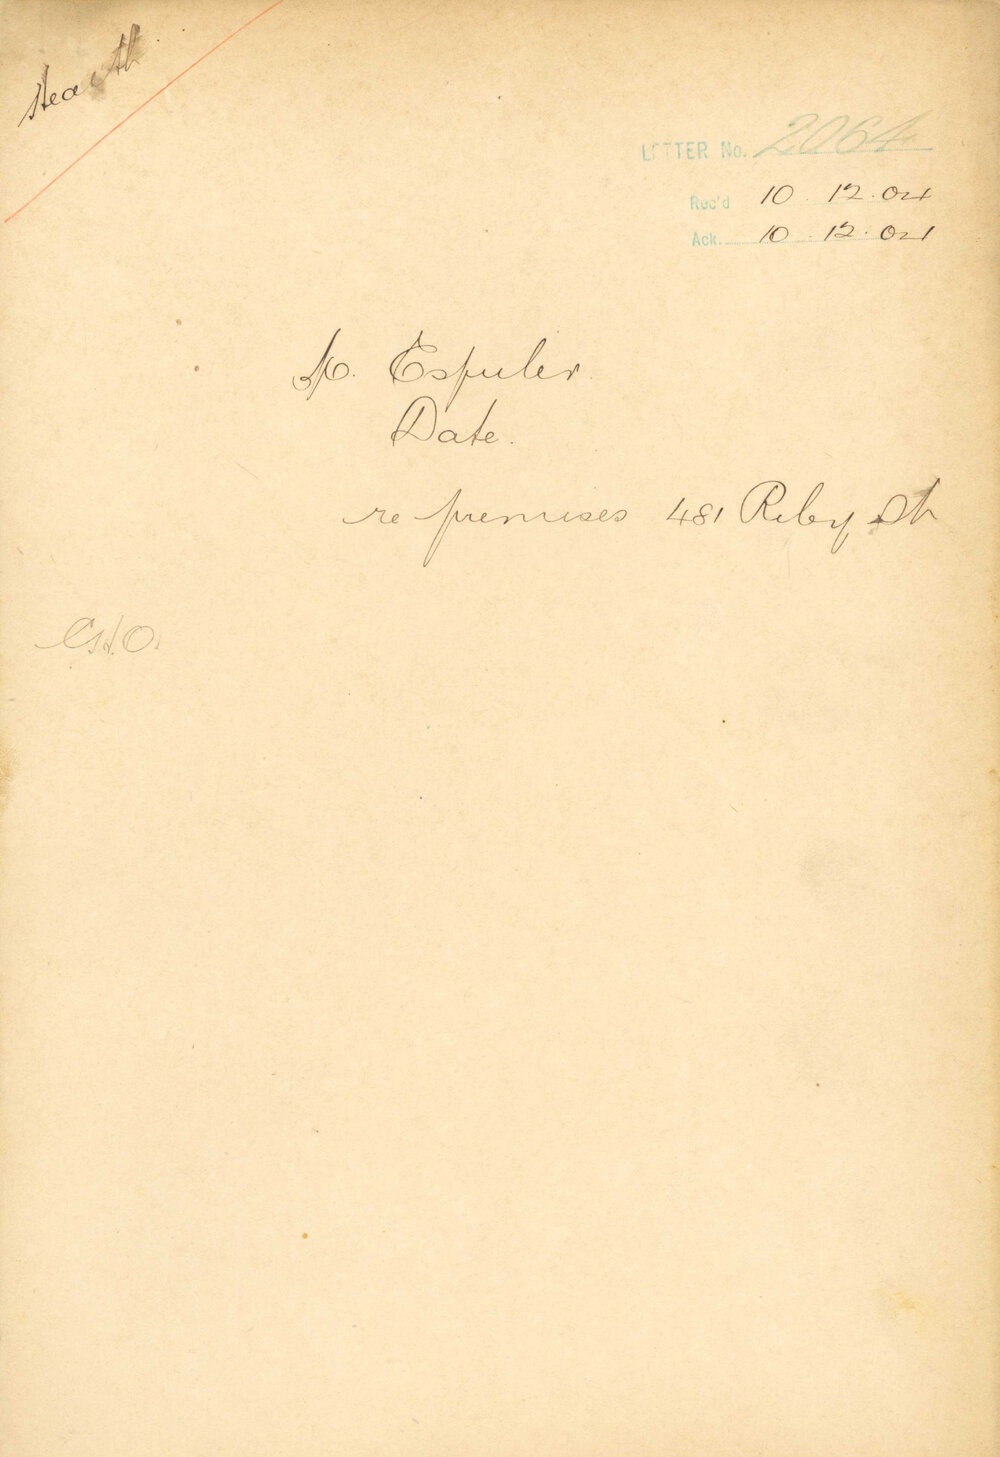 Health
LETTER No. 2064
Rec'd 10.12.04
Ack. 10.12.04
M. Espuler.
Date.
re premises 481 Riley St
C.H.O.